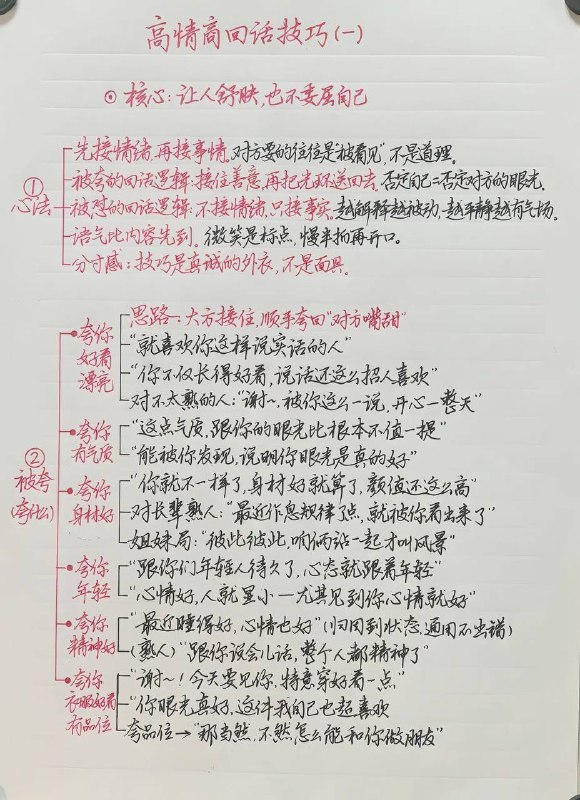 高情商回话技巧(一)
⊙ 核心:让人舒肤,也不委屈自己
① 心法
先接情绪,再接事情。对方要的往往是"被看见",不是道理。
被夸的回话逻辑:接住善意,再把光环送回去。否定自己=否定对方的眼光。
被怼的回话逻辑:不接情绪,只接事实。越解释越被动,越平静越有气场。
语气比内容先到。微笑是标点,慢半拍再开口。
分寸感:技巧是真诚的外衣,不是面具。
② 被夸(夸什么)
夸你好看漂亮
思路:大方接住,顺手夸回"对方嘴甜"
"就喜欢你这样说实话的人"
"你不仅长得好看,说话还这么招人喜欢"
对不太熟的人:"谢~,被你这么一说,开心一整天"
夸你有气质
"这点气质,跟你的眼光比根本不值一提"
"能被你发现,说明你眼光是真的好"
夸你身材好
"你就不一样了,身材好就算了,颜值还这么高"
对长辈熟人:"最近作息规律了点,就被你看出来了"
姐妹局:"彼此彼此,咱俩站一起才叫风景"
夸你年轻
"跟你们年轻人待久了,心态就跟着年轻"
"心情好,人就显小—尤其见到你心情就好"
夸你精神好
"最近睡得好,心情也好"(归因到状态,通用不出错)
(熟人)"跟你说会儿话,整个人都精神了"
夸你衣服好看有品位
"谢~!今天要见你,特意穿好看一点"
"你眼光真好,这件我自己也超喜欢
夸品位→"那当然,不然怎么能和你做朋友"